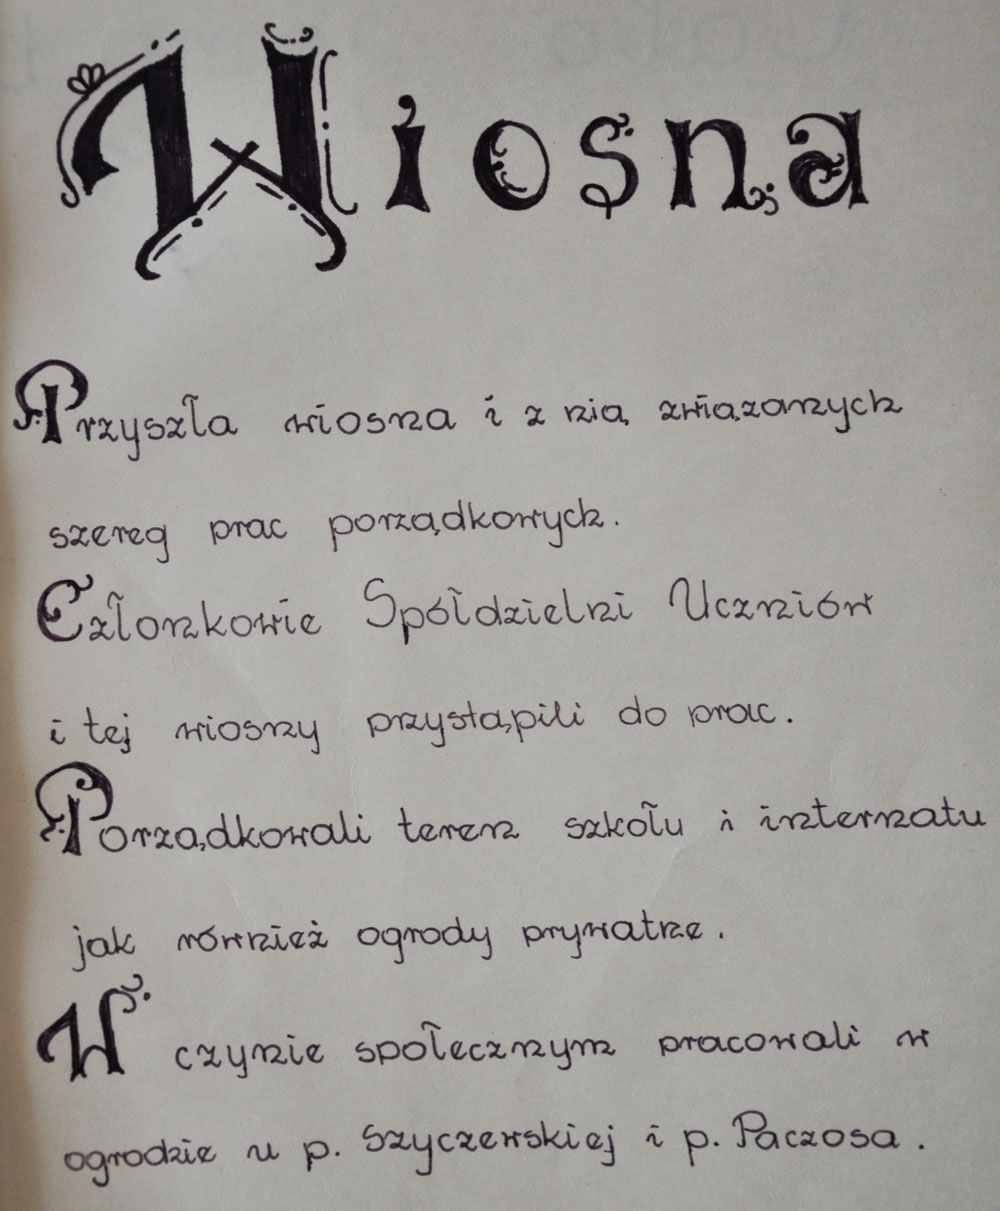 Wiosna
Przyszła wiosna i z nią związanych
szereg prac porządkowych.
Członkowie Spółdzielni Uczniów
i tej wiosny przystąpili do prac.
Porządkowali teren szkołu i internatu
jak również ogrody prywatne.
W czynie społecznym pracowali w
ogrodzie u p. Szyczewskiej i p. Paczosa.